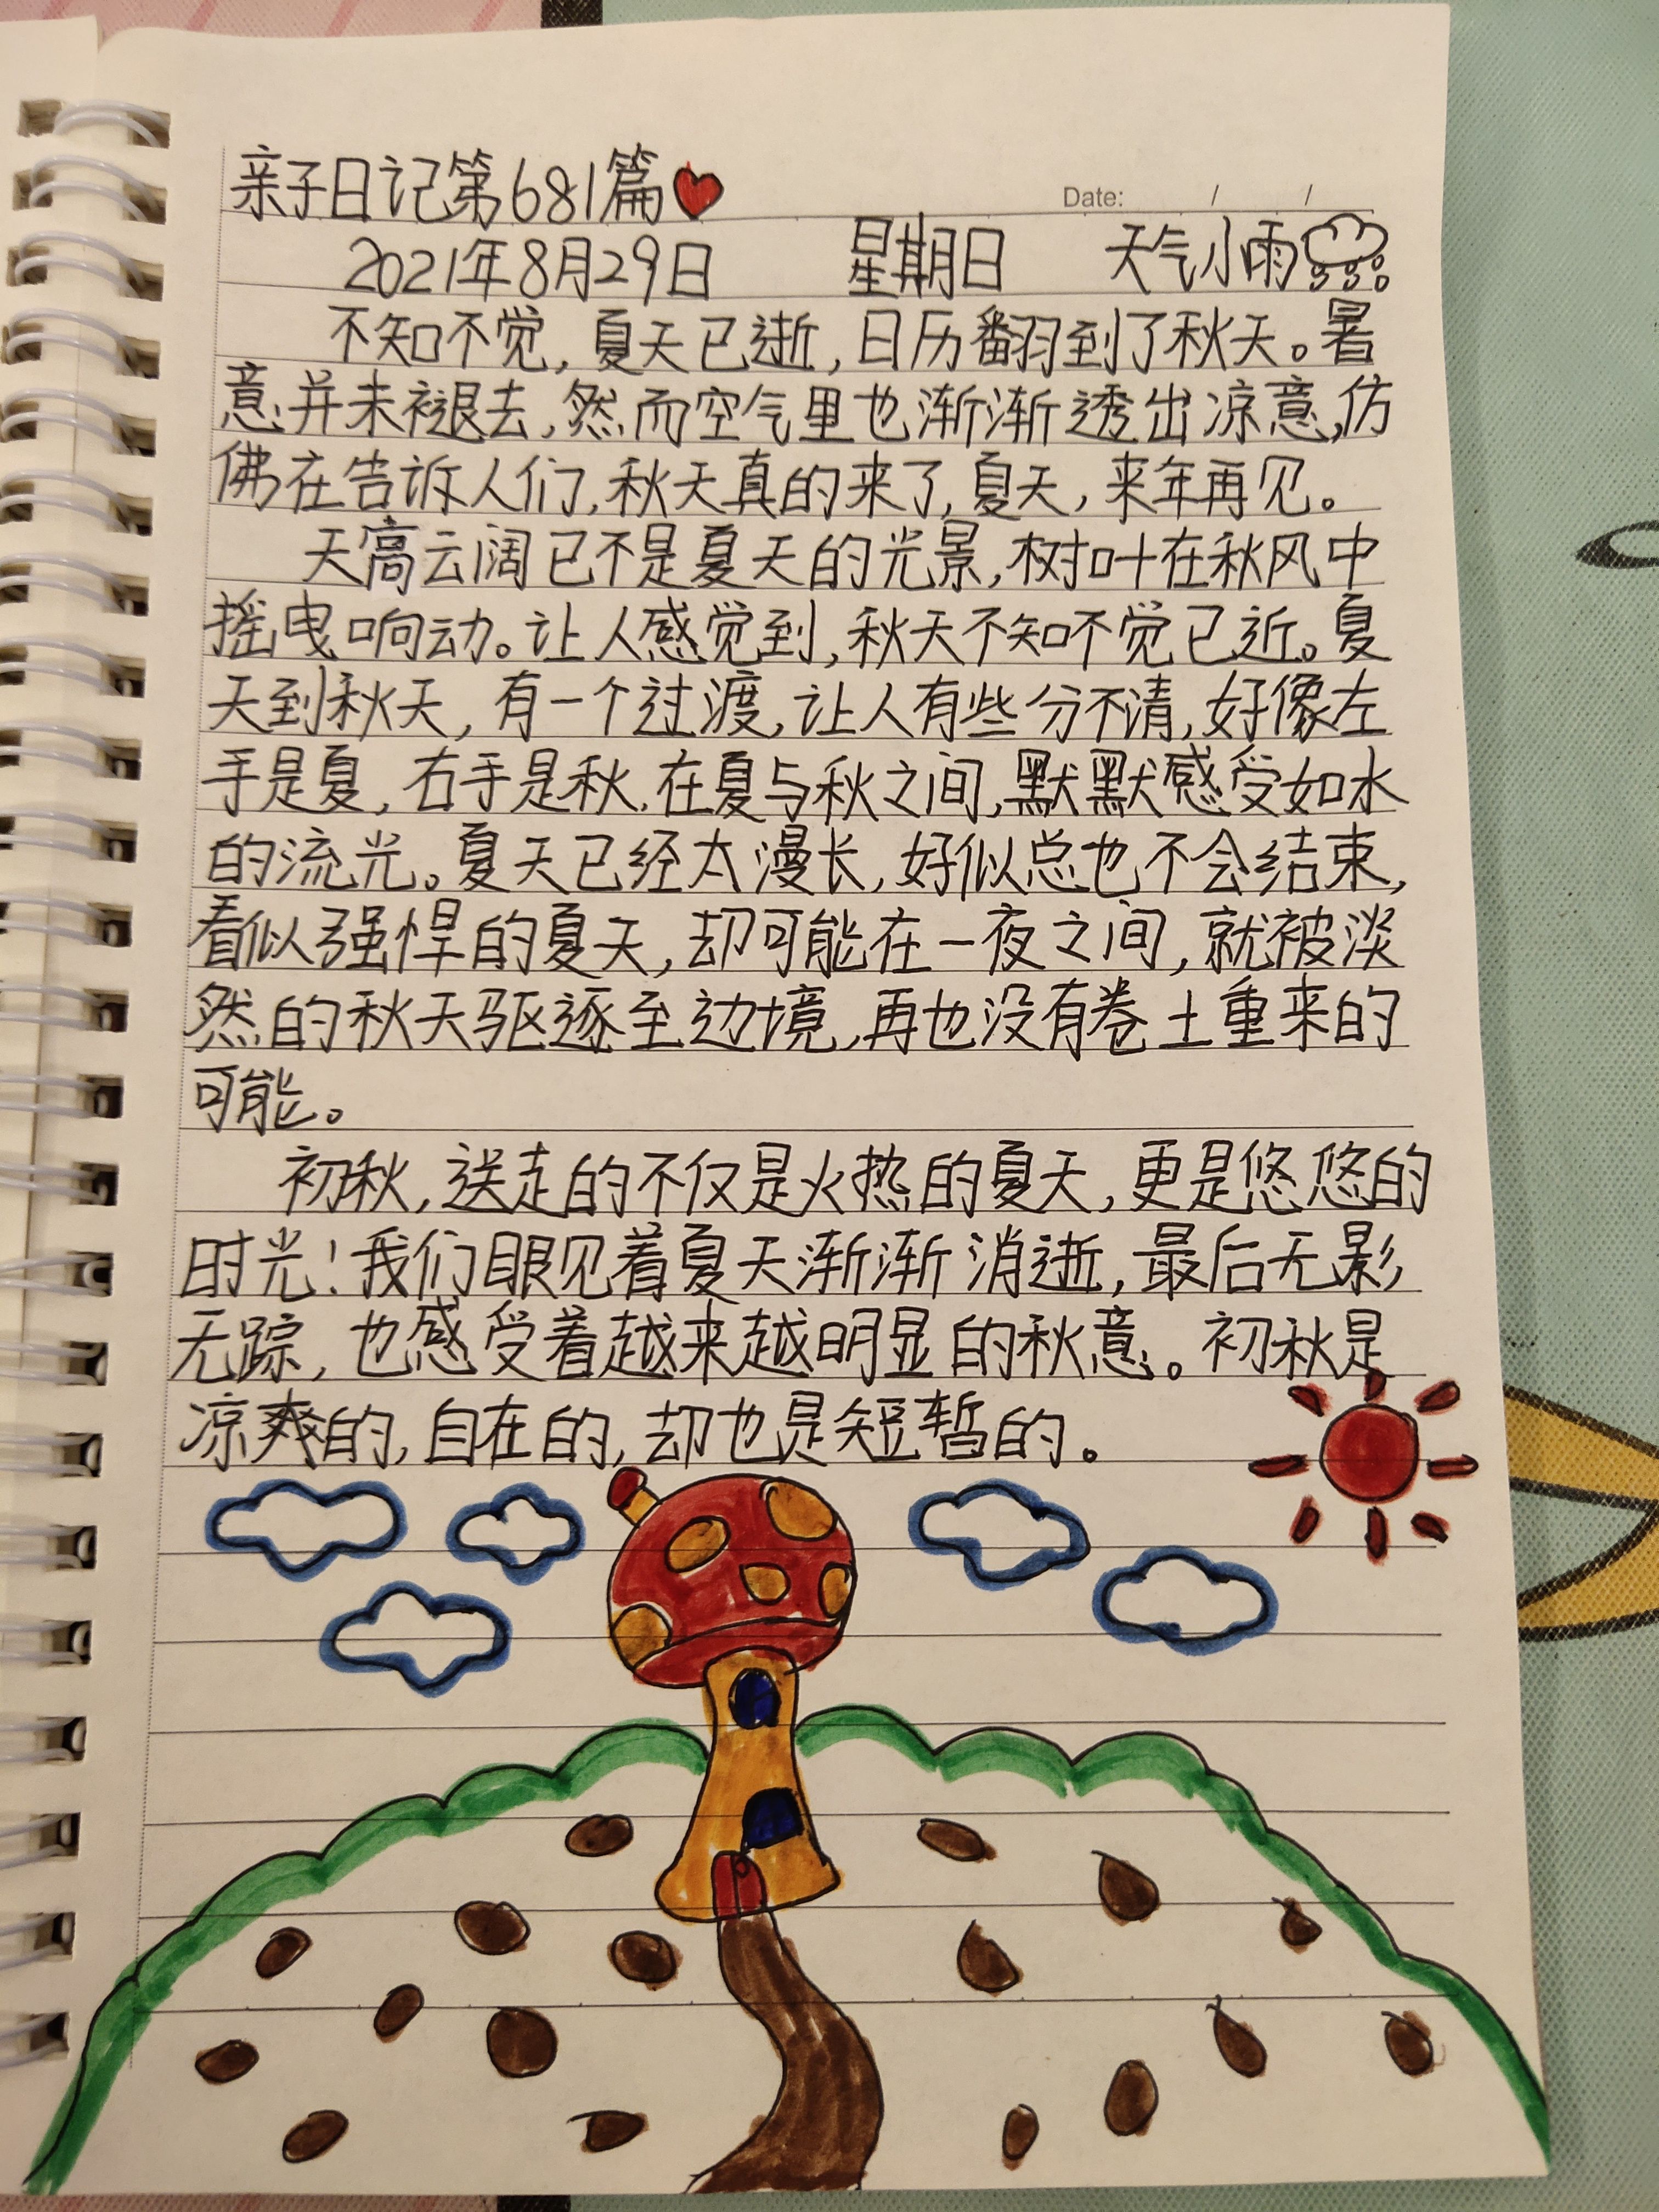 亲子日记第681篇
Date: / /
2021年8月29日 星期日 天气小雨
不知不觉,夏天已逝,日历翻到了秋天。暑
意并未褪去,然而空气里也渐渐透出凉意,仿
佛在告诉人们,秋天真的来了,夏天,来年再见。
天高云阔已不是夏天的光景,树叶在秋风中
摇曳响动。让人感觉到,秋天不知不觉已近。夏
天到秋天,有一个过渡,让人有些分不清,好像左
手是夏,右手是秋.在夏与秋之间,默默感受如水
的流光。夏天已经太漫长,好似总也不会结束,
看似强悍的夏天,却可能在一夜之间,就被淡
然的秋天驱逐至边境,再也没有卷土重来的
可能。
初秋,送走的不仅是火热的夏天,更是悠悠的
时光!我们眼见着夏天渐渐消逝,最后无影
无踪,也感受着越来越明显的秋意。初秋是
凉爽的,自在的,却也是短暂的。